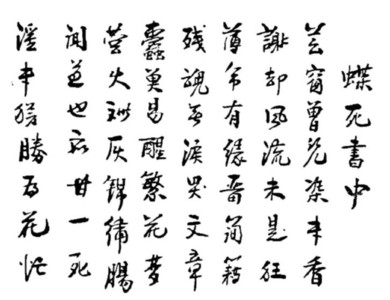 蝶死書中
芸窗曾幾染書香
謝却風流未是狂
薄命有緣留簡籍
殘魂無淚哭文章
蠹魚易醒繁花夢
螢火難灰錦繡腸
聞道也應甘一死
淫書猶勝為花忙